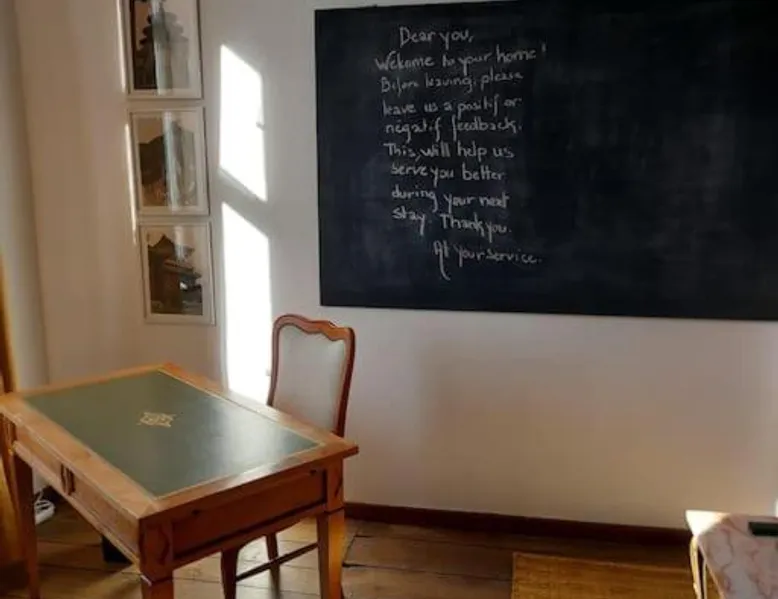 Dear you,
Welcome to your home!
Before leaving, please
leave us a positif or
négatif feedback.
This, will help us
serve you better
during your next
stay. Thank you.
At your service.